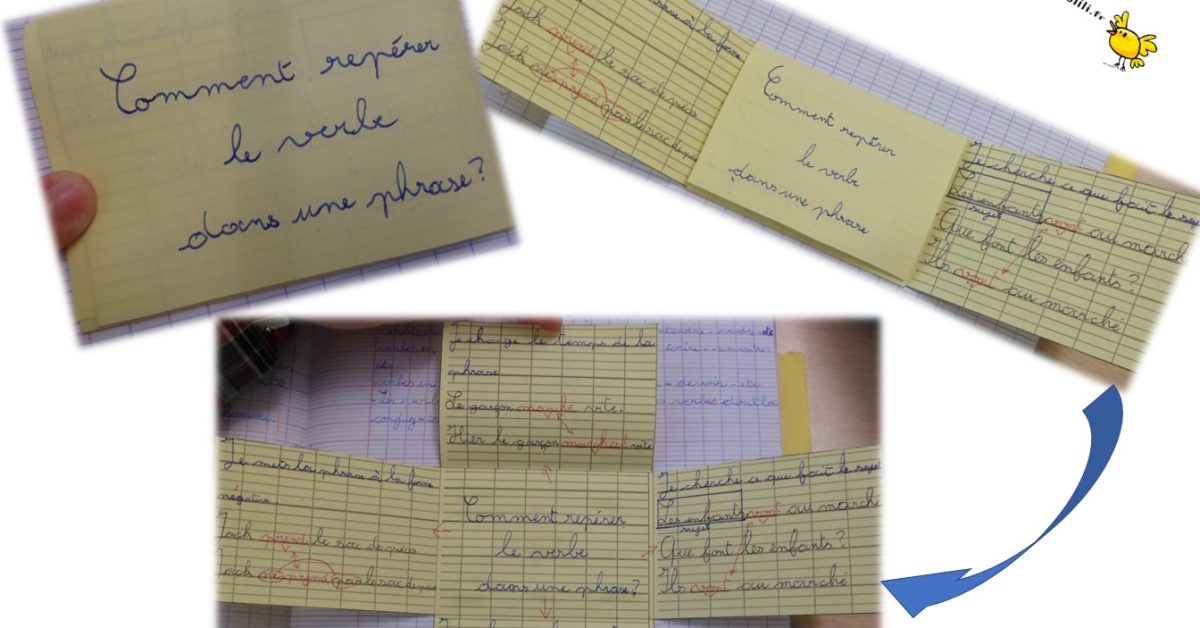 Comment repérer
le verbe
dans une phrase?
lili.fr
à la forme
Jack prend le sac de pièces
Jack ne prend pas le sac de
Comment repérer
le verbe
dans une phrase
Je cherche ce que fait le sujet
Les enfants vont au march
sujet
Que font les enfants?
Ils vont au marché
Je change le temps de la
phrase
Le garçon marche vite.
Hier le garçon marchait vite
Je mets la phrase à la forme
négative.
Jack prend le sac de pièces
Jack ne prend pas le sac de
Comment repérer
le verbe
dans une phrase?
Je cherche ce que fait le sujet
Les enfants vont au marché
sujet
Que font les enfants?
Ils vont au marché
verbes en
- devoir - etc
verbes en
- Les verb
s verbes dont la
conjugais